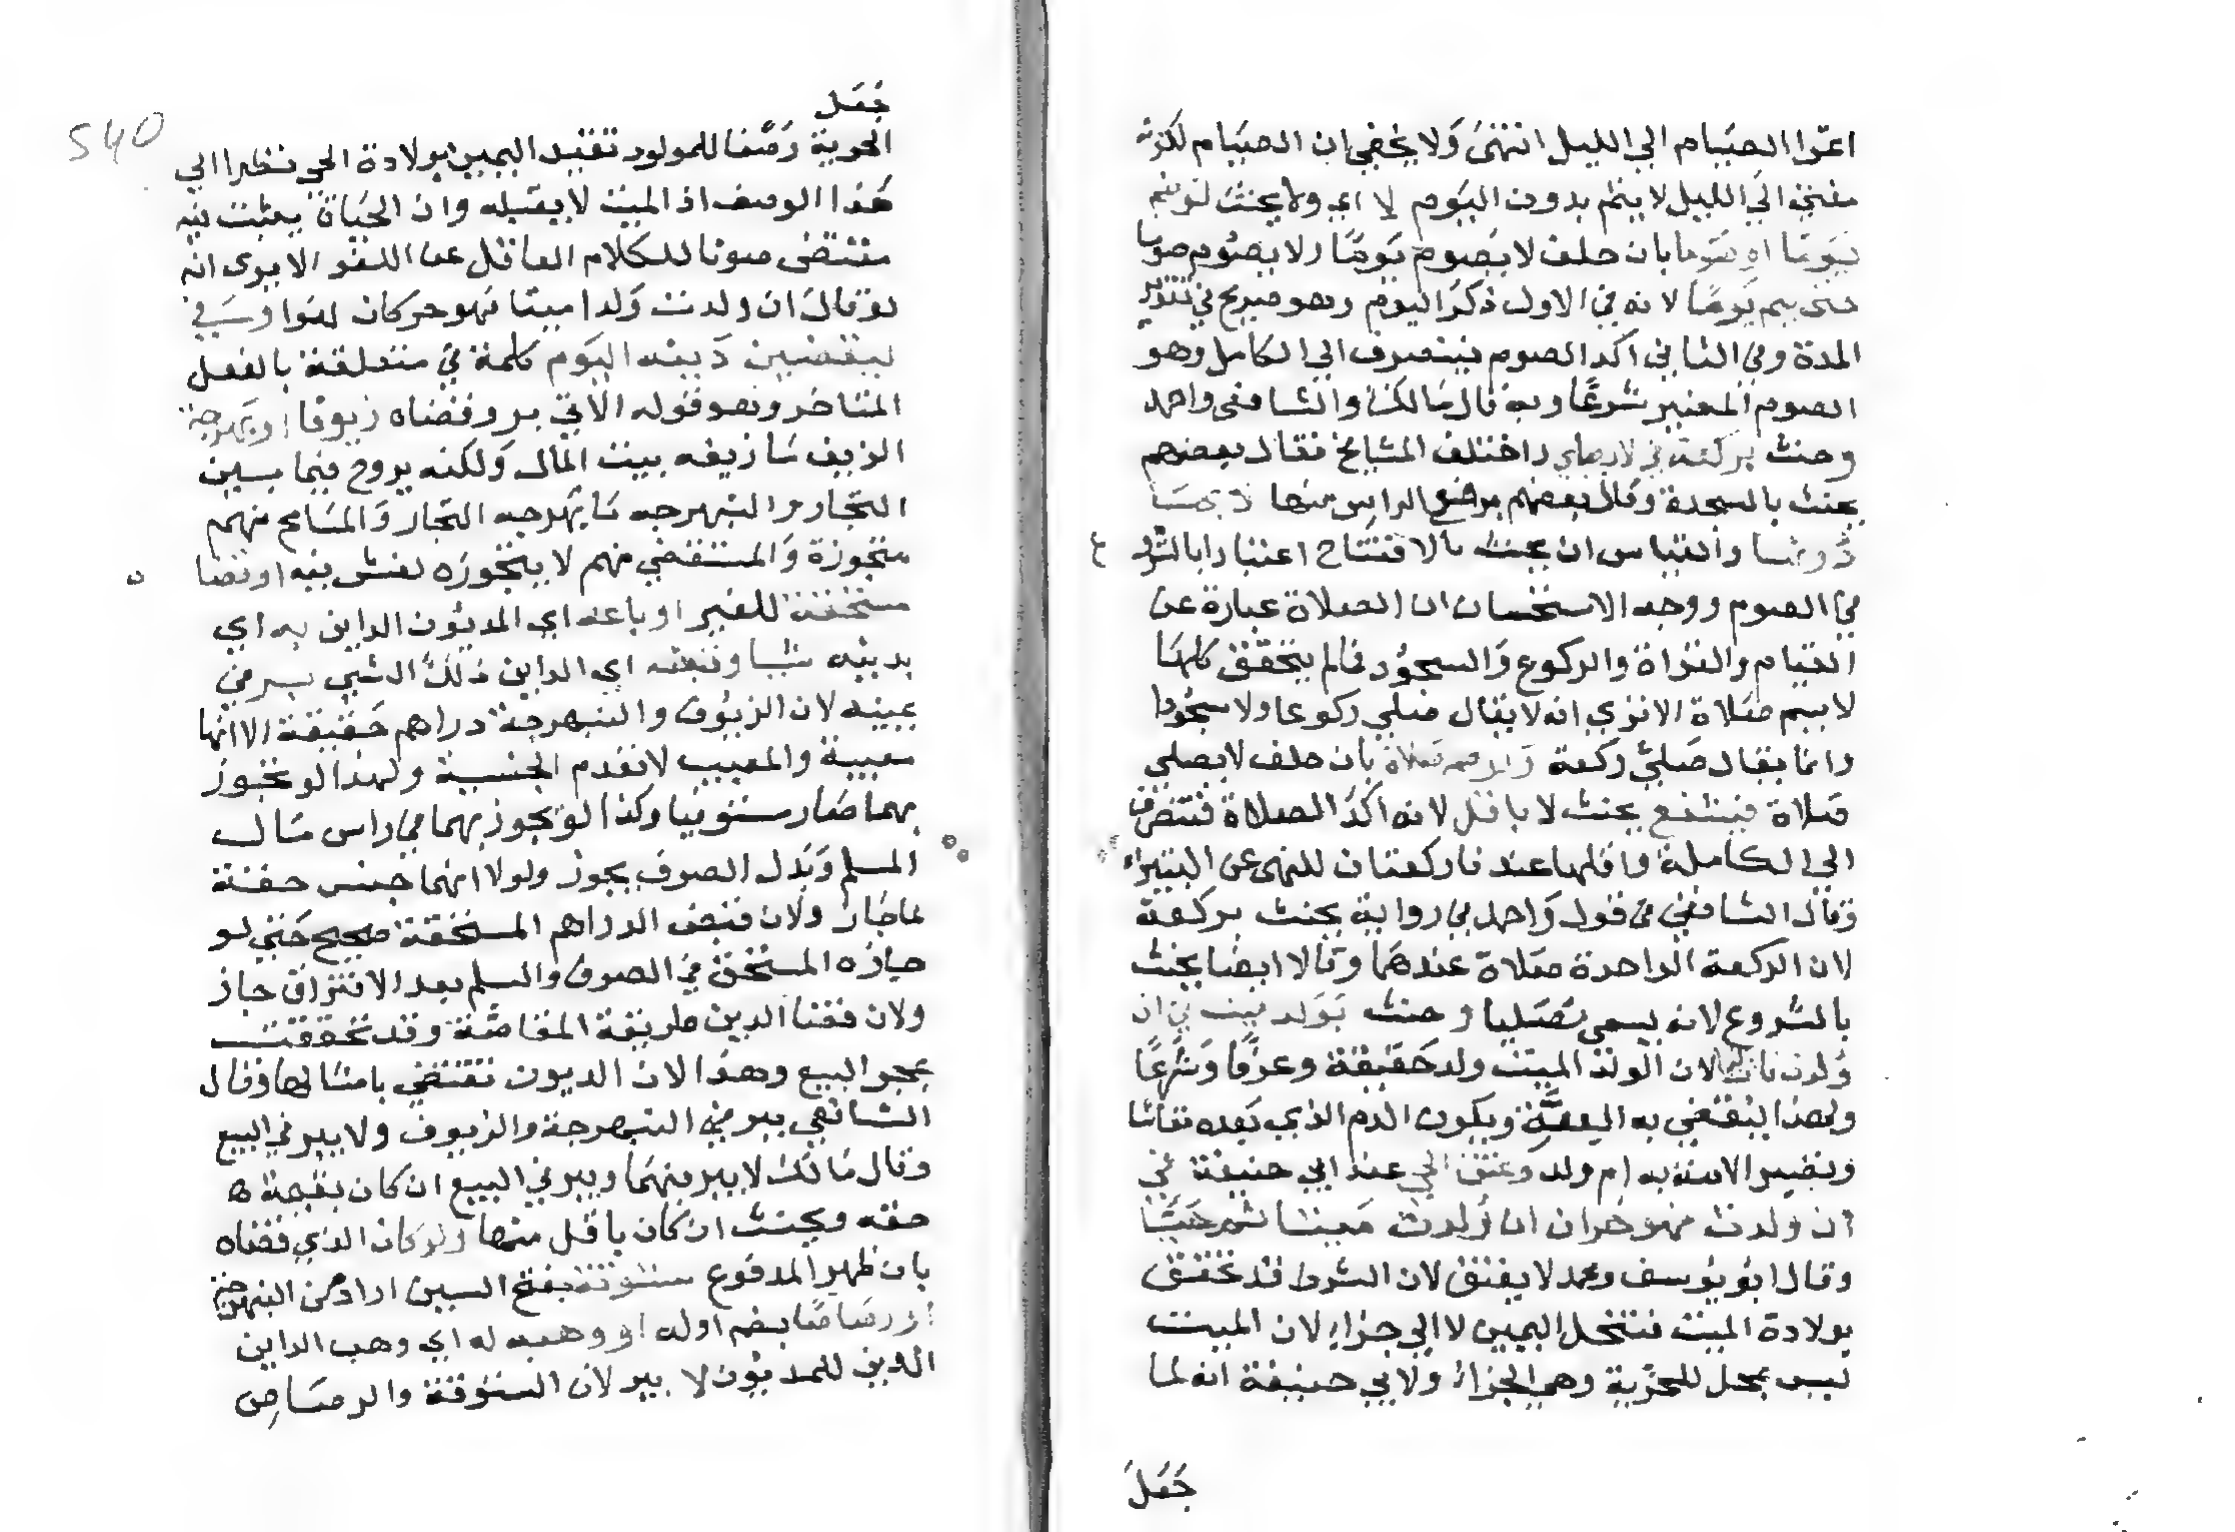 اتموا الصيام الى الليل انتهى ولا يخفى ان الصيام لكونه
مغيي الى الليل لا يتم بدون اليوم لا اي ولا يحنث لو ضم
يوما او صوما بان حلف لا يصوم يوما او لا يصوم صوما
حتى يتم يوما لانه في الاول ذكر اليوم وهو صريح في تقدير
المدة وفي الثاني اكد الصوم فينصرف الى الكامل وهو
الصوم المعتبر شرعا وبه قال مالك والشافعي واحمد
وحنث بركعة في لا يصلي واختلف المشايخ فقال بعضهم
يحنث بالسجدة وقال بعضهم برفع الراس منها
والقياس ان يحنث بالافتتاح اعتبارا بالشروع
في الصوم ووجه الاستحسان ان الصلاة عبارة عن
القيام والقراة والركوع والسجود فما لم يتحقق كلها
لا يسم صلاة الا ترى انه لا يقال صلى ركوعا ولا سجودا
وانما يقال صلى ركعة ولو ضم صلاة بان حلف لا يصلي
صلاة فبشفع يحنث لا باقل لانه اكد الصلاة فتنصرف
الى الكاملة واقلها عندنا ركعتان للنهى عن البتيراء
وقال الشافعي في قول واحمد في رواية يحنث بركعة
لان الركعة الواحدة صلاة عندهما وقالا ايضا يحنث
بالشروع لانه يسمى مصليا وحنث بولد ميت في ان
ولدت فانت كذا لان الولد الميت ولد حقيقة وعرفا وشرعا
ولهذا ينقضي به العدة ويكون الدم الذي بعده نفاسا
وتصير الامة به ام ولد وعتق الحي عند ابي حنيفة في
ان ولدت فهو حر ان ولدت ميتا ثم حيا
وقال ابو يوسف ومحمد لا يعتق لان الشرط قد تحقق
بولادة الميت فتنحل اليمين لا الى جزاء لان الميت
ليس بمحل للحرية وهي الجزاء ولابي حنيفة انه لما
جعل
جعل
الحرية وصفا للمولود تقيد اليمين بولادة الحي نظرا الى
هذا الوصف اذ الميت لا يقبله وان الحياة يثبت فيه
مقتضى صونا لكلام العاقل عن اللغو الا يرى انه
لو قال ان ولدت ولدا ميتا فهو حر كان لغوا وفي
ليقضين دينه اليوم كلمة في متعلقة بالفعل
المتاخر وهو قوله الاتي بر وقضاه زيوفا او نبهرجة
الزيف ما زيفه بيت المال ولكنه يروج فيما بين
التجار والنبهرجه ما بهرجه التجار والمسامح منهم
متجوزة والمستقضي منهم لا يتجوزه لغش فيه او قضا
مستحقة للغير او باعه اي المديون الداين به اي
بدينه شيا وقبضه اي الداين ذلك الشي بر في
يمينه لان الزيوف والنبهرجة دراهم حقيقة الا انها
معيبة والمعيب لا تعدم الجنسية ولهذا لو تجوز
بهما صار مستوفيا وكذا لو تجوز بهما في راس مال
المسلم وبدل الصرف يجوز ولولا انهما جنس حقه
لما جاز ولان قبض الدراهم المستحقة صحيح حتى لو
اجازه المستحق في الصرف والسلم بعد الافتراق جاز
ولان قضا الدين طريقة المقاصة وقد تحققت
بمجرد البيع وهذا لان الديون تقتضي بامثالها وقال
الشافعي يبر في النبهرجة والزيوف ولا يبر في البيع
وقال مالك لا يبر فيهما ويبر في البيع ان كان بقيمة
حقه ويحنث ان كان باقل منها ولو كان الذي قضاه
بان ظهر المدفوع ستوقة بفتح السين اردا من النبهرجة
او رصاصا بضم اوله او وهبه له اي وهب الداين
الدين للمديون لا يبر لان الستوقة والرصاص